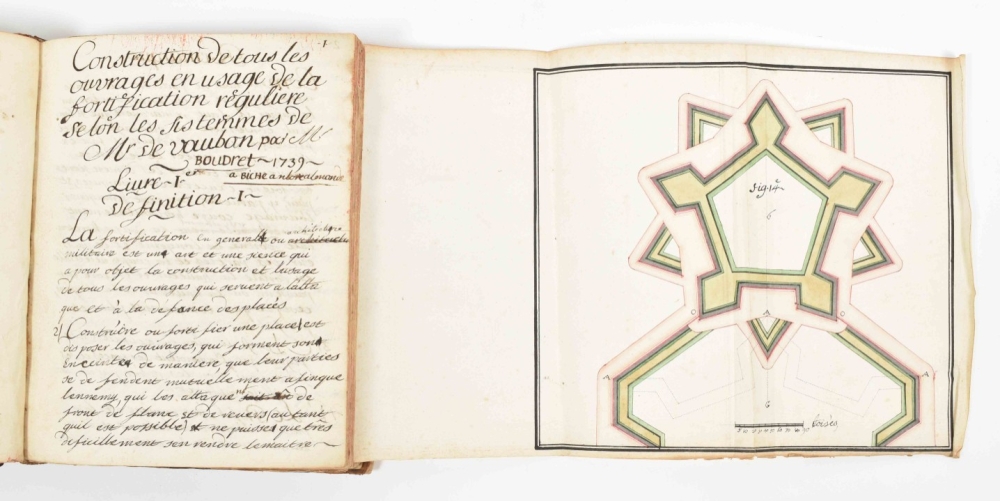 -1
Construction de tous les
ouvrages en usage de la
fortification réguliere
selon les sistemmes de
Mr de vauban par Mr
BOUDRET ~ 1739 ~
a BICHE
Livre ~ I er
Definition ~ I ~
La fortification en general ou
militaire est une art et une sience qui
a pour objet la construction et l'usage
de tous les ouvrages qui servent a latta
que et à la defance des placés
2) Construire ou forti fier une place, est
disposer les ouvrages, qui forment son
Enceinte de maniere, que leur parties
se de fendent mutuellement afinque
lennemy, qui les attaque de
front de flanc et de revers (autant
quil est possible) et ne puisses que tres
difecillement s'en rendre le maitre ~
fig: 14e
6
C
A
C
A
A
6
toises